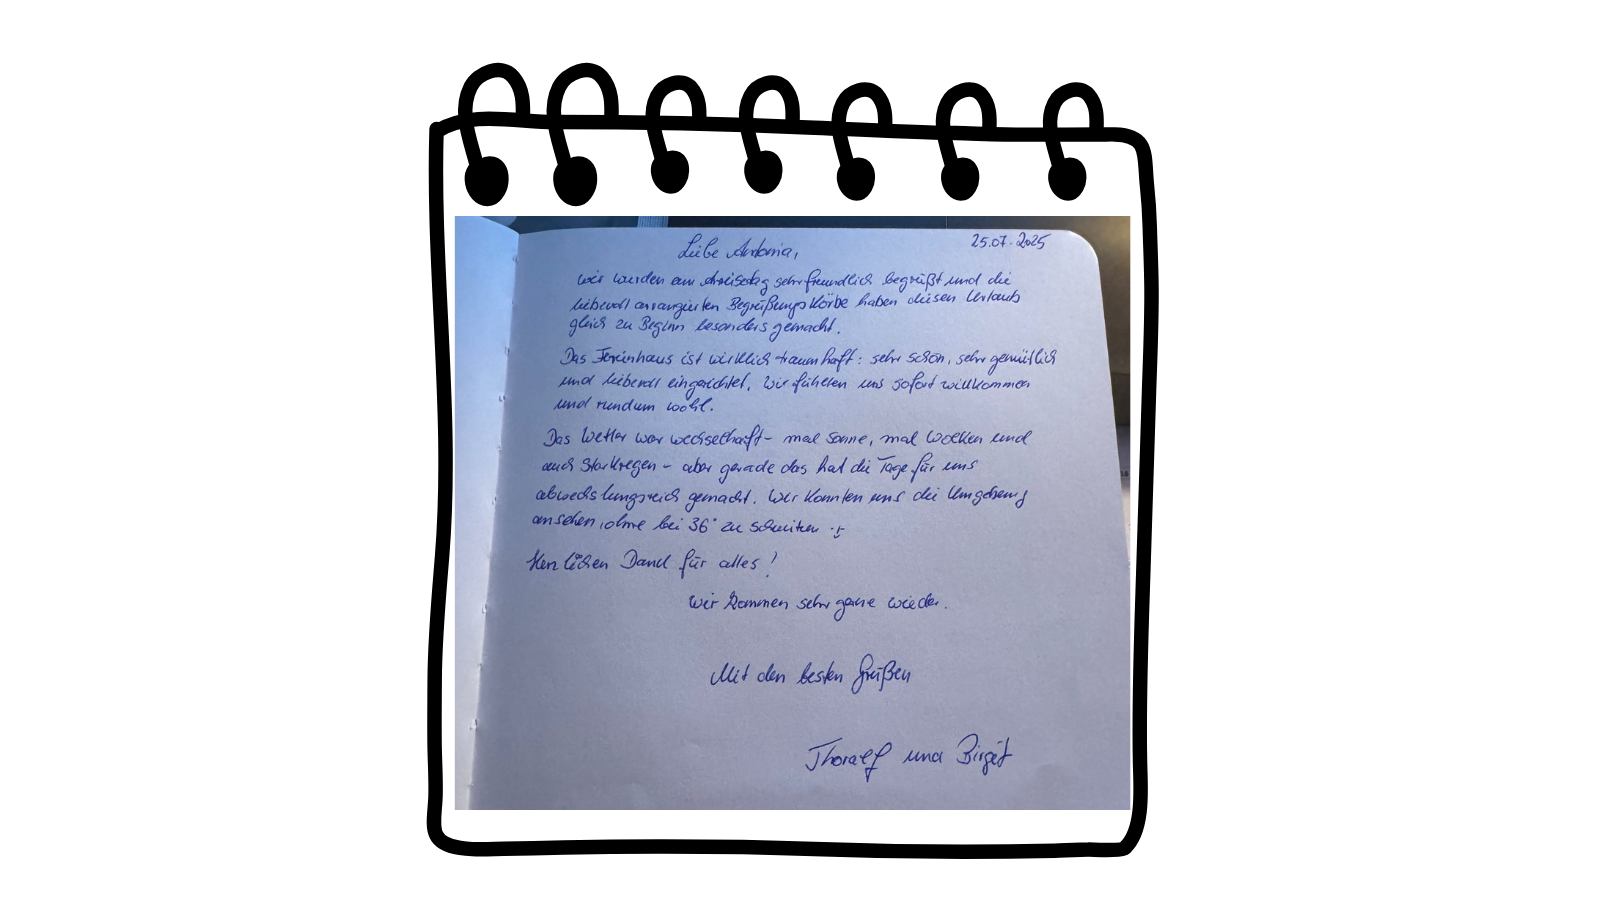 25.07.2025
Liebe Antonia,
wir wurden am Anreisetag sehr freundlich begrüßt und die
liebevoll arrangierten Begrüßungskörbe haben diesen Urlaub
gleich zu Beginn besonders gemacht.
Das Ferienhaus ist wirklich traumhaft: sehr schön, sehr gemütlich
und liebevoll eingerichtet. Wir fühlten uns sofort willkommen
und rundum wohl.
Das Wetter war wechselhaft - mal Sonne, mal Wolken und
auch Starkregen - aber gerade das hat die Tage für uns
abwechslungsreich gemacht. Wir konnten uns die Umgebung
ansehen, ohne bei 36° zu schwitzen :-)
Herzlichen Dank für alles!
Wir kommen sehr gerne wieder.
Mit den besten Grüßen
Thoralf und Birgit